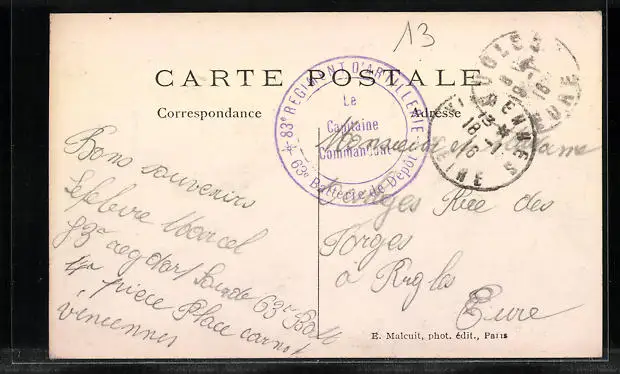 13
CARTE POSTALE
Correspondance
Adresse
83e REGIMENT D'ARTILLERIE
Le
Capitaine
Commandant
63e Batterie de Dépôt
VINCENNES
18 - 1
16
EURE
Bons souvenirs
Lefebvre Marcel
83e reg dart 63e Batt
4e pièce Place carnot
Vincennes
Monsieur et Madame
Rue des
Forges
à Rugles
Eure
E. Malcuit, phot. édit., Paris